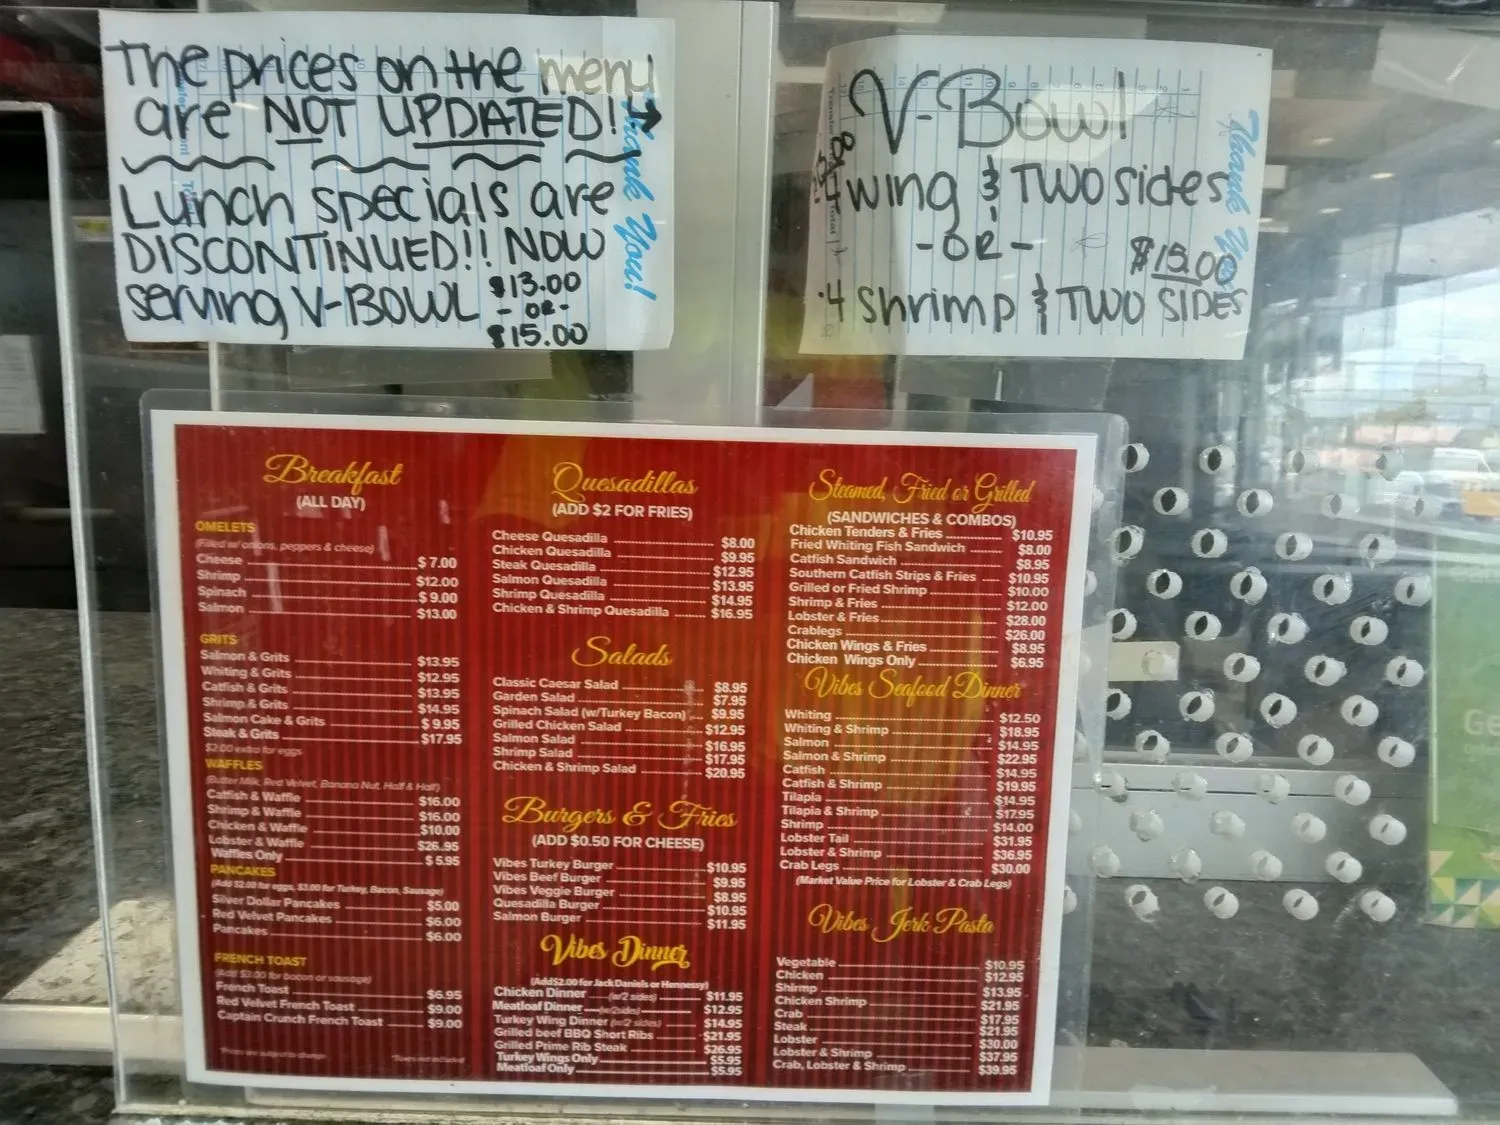 The prices on the menu
are NOT UPDATED!! →
Lunch specials are
DISCONTINUED!! NOW
serving V-BOWL $13.00
- OR -
$15.00
Thank You!
V-Bowl!
4 wing & TWO sides
- OR -
$15.00
·4 Shrimp & TWO SIDES
Thank You
Breakfast
(ALL DAY)
OMELETS
(Filled w/ onions, peppers & cheese)
Cheese $ 7.00
Shrimp $12.00
Spinach $ 9.00
Salmon $13.00
GRITS
Salmon & Grits $13.95
Whiting & Grits $12.95
Catfish & Grits $13.95
Shrimp & Grits $14.95
Salmon Cake & Grits $ 9.95
Steak & Grits $17.95
$2.00 extra for eggs
WAFFLES
(Butter Milk, Red Velvet, Banana Nut, Half & Half)
Catfish & Waffle $16.00
Shrimp & Waffle $16.00
Chicken & Waffle $10.00
Lobster & Waffle $26.95
Waffles Only $ 5.95
PANCAKES
(Add $2.00 for eggs, $3.00 for Turkey, Bacon, Sausage)
Silver Dollar Pancakes $5.00
Red Velvet Pancakes $6.00
Pancakes $6.00
FRENCH TOAST
(Add $3.00 for bacon or sausage)
French Toast $6.95
Red Velvet French Toast $9.00
Captain Crunch French Toast $9.00
*Prices are subject to change
*Taxes not included
Quesadillas
(ADD $2 FOR FRIES)
Cheese Quesadilla $8.00
Chicken Quesadilla $9.95
Steak Quesadilla $12.95
Salmon Quesadilla $13.95
Shrimp Quesadilla $14.95
Chicken & Shrimp Quesadilla $16.95
Salads
Classic Caesar Salad $8.95
Garden Salad $7.95
Spinach Salad (w/Turkey Bacon) $9.95
Grilled Chicken Salad $12.95
Salmon Salad $16.95
Shrimp Salad $17.95
Chicken & Shrimp Salad $20.95
Burgers & Fries
(ADD $0.50 FOR CHEESE)
Vibes Turkey Burger $10.95
Vibes Beef Burger $9.95
Vibes Veggie Burger $8.95
Quesadilla Burger $10.95
Salmon Burger $11.95
Vibes Dinner
(Add$2.00 for Jack Daniels or Hennessy)
Chicken Dinner (w/2 sides) $11.95
Meatloaf Dinner (w/2sides) $12.95
Turkey Wing Dinner (w/2 sides) $14.95
Grilled beef BBQ Short Ribs $21.95
Grilled Prime Rib Steak $26.95
Turkey Wings Only $5.95
Meatloaf Only $5.95
Steamed, Fried or Grilled
(SANDWICHES & COMBOS)
Chicken Tenders & Fries $10.95
Fried Whiting Fish Sandwich $8.00
Catfish Sandwich $8.95
Southern Catfish Strips & Fries $10.95
Grilled or Fried Shrimp $10.00
Shrimp & Fries $12.00
Lobster & Fries $28.00
Crablegs $26.00
Chicken Wings & Fries $8.95
Chicken Wings Only $6.95
Vibes Seafood Dinner
Whiting $12.50
Whiting & Shrimp $18.95
Salmon $14.95
Salmon & Shrimp $22.95
Catfish $14.95
Catfish & Shrimp $19.95
Tilapia $14.95
Tilapia & Shrimp $17.95
Shrimp $14.00
Lobster Tail $31.95
Lobster & Shrimp $36.95
Crab Legs $30.00
(Market Value Price for Lobster & Crab Legs)
Vibes Jerk Pasta
Vegetable $10.95
Chicken $12.95
Shirmp $13.95
Chicken Shrimp $21.95
Crab $17.95
Steak $21.95
Lobster $30.00
Lobster & Shrimp $37.95
Crab, Lobster & Shrimp $39.95